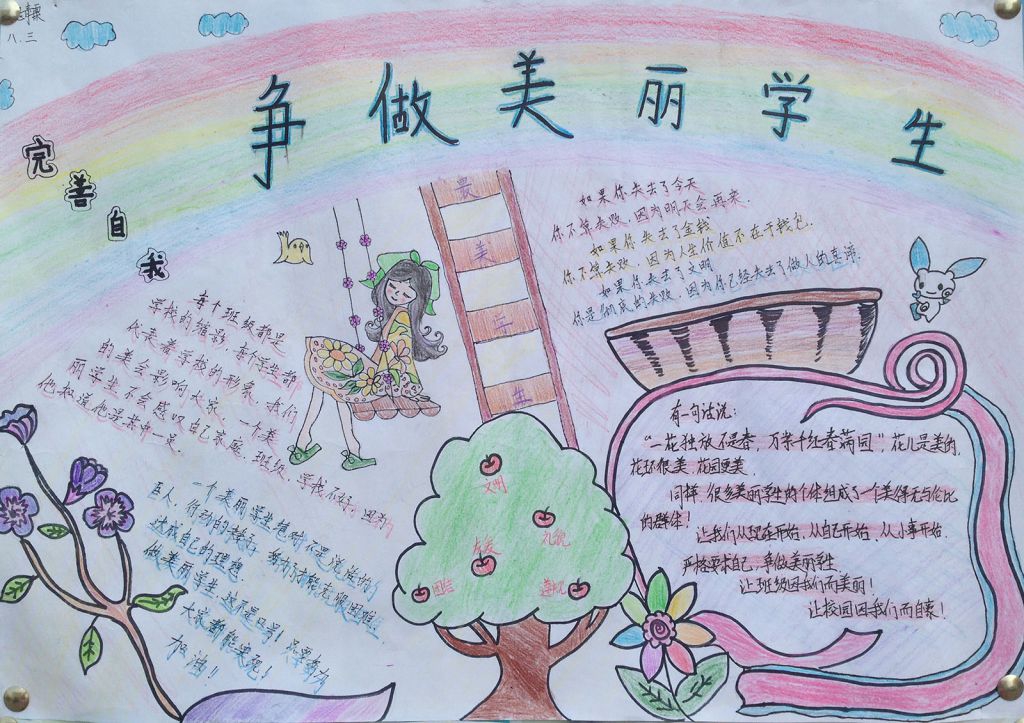 八.三
争做美丽学生
完善自我
最美学生
如果你失去了今天
你不算失败，因为明天会再来.
如果你失去了金钱
你不算失败，因为人生价值不在于钱包.
如果你失去了文明
你是彻底的失败，因为你已经失去了做人的真谛.
每个班级都是
学校的缩影，每个学生都
代表着学校的形象.我们
的美会影响大家.一个美
丽学生不会感叹自己家庭.班级.学校不好，因为
他知道他是其中一员.
一个美丽学生绝对不是说话的
巨人，行动的矮子
达成自己的理想.
做美丽学生，这不是口号！只要努力
大家都能实现！
加油！！
文明
礼貌
友爱
团结
遵规
有一句话说：
“一花独放不是春，万紫千红春满园”花儿是美的，
花环很美，花园更美.
同样，很多美丽学生的个体组成了一个美伴无与伦比
的群体！
让我们从现在开始，从自己开始，从小事开始.
严格要求自己，争做美丽学生
让班级因我们而美丽！
让校园因我们而自豪！